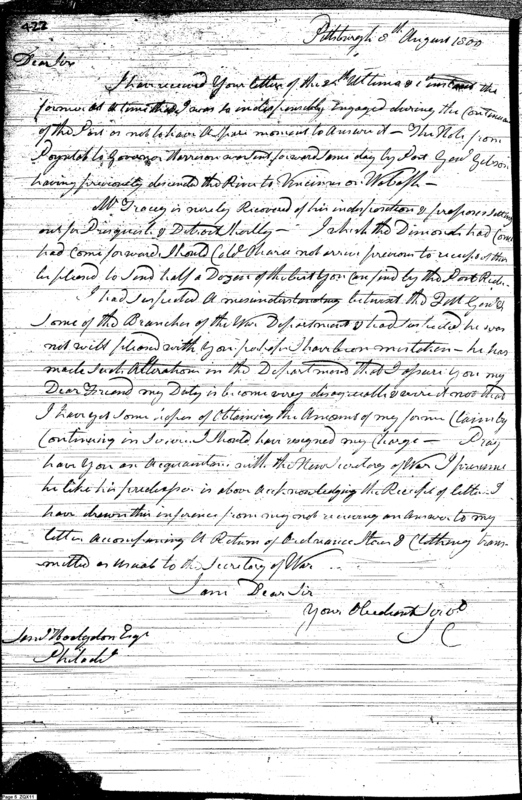 422
Pittsburgh 8th August 1800
Dear Sir
I have received Your letters of the 24th Ultimo & 1st instant the
former at a time that I was so indispensibly Engaged during the Continuance
of the Post as not to have a Spare moment to Answer it – The Note from
Governor Harrison was sent forward same day by Post Genl. Gibson
having previously descended the River to Vincinnes on Wabash –
Mr Tracey is nearly Recovered of his indisposition & proposes setting
out for Presquile & Detroit shortly – I wish the Dimonds had come
had come forward, Should Cold. Ohara not arrive previous to receipt of this
be pleased to Send half a Dozen of the best You can find by the Post Rider
I had suspected a misunderstanding between the Genl. &
Some of the Branches of the War Department & had suspected he was
not well pleased with You perhaps I have been mistaken – he has
made Such Alterations in the Department that I assure you my
Dear Friend my Duty is become very disagreeable & were it not that
I have yet some hopes of Obtaining the Amount of my former Claim by
Continuing in Service I Should have resigned my Charge – Pray
have You an Acquaintance with the New Secretary of War I presume
he like his predecessor is above acknowledging the Receipt of letters I
have drawn this inference from my not receiving an Answer to my
letter accompanying A Return of Ordnance Stores & Clothing trans-
mitted as usual to the Secretary of War
I am Dear Sir
Your Obedient Servt.
J C
Saml Hodgdon Esqr
Philada
Page 5